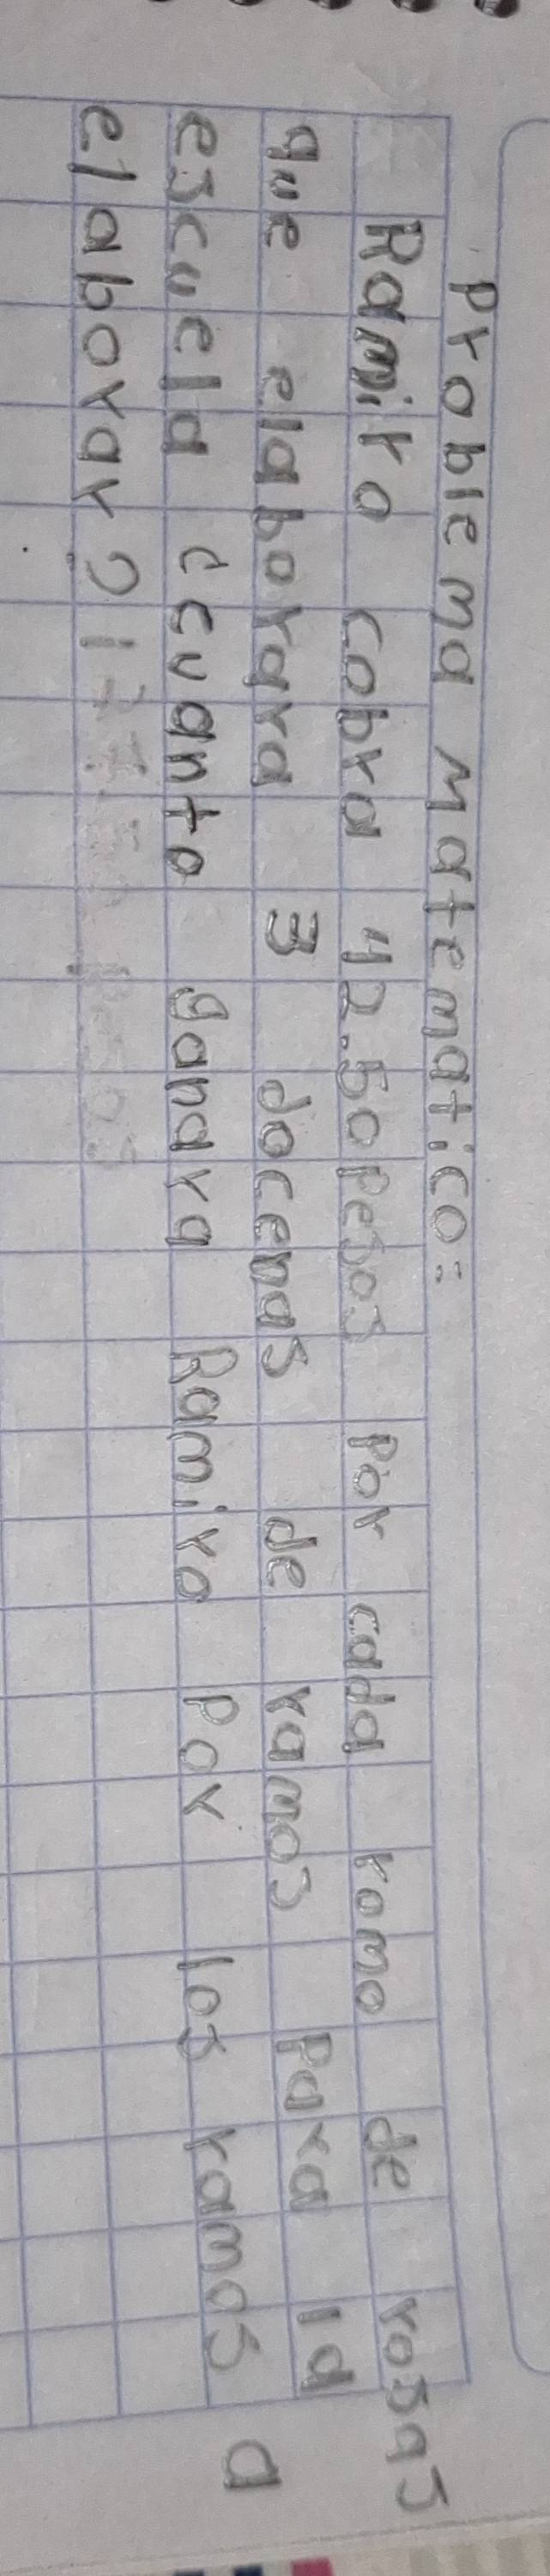 Problema Matematico:
Ramiro cobra 42.50 pesos por cada romo de rosas
que elaborara 3 docenas de ramos para la
escuela ccuanto ganara Ramiro por los ramos a
elaborar?